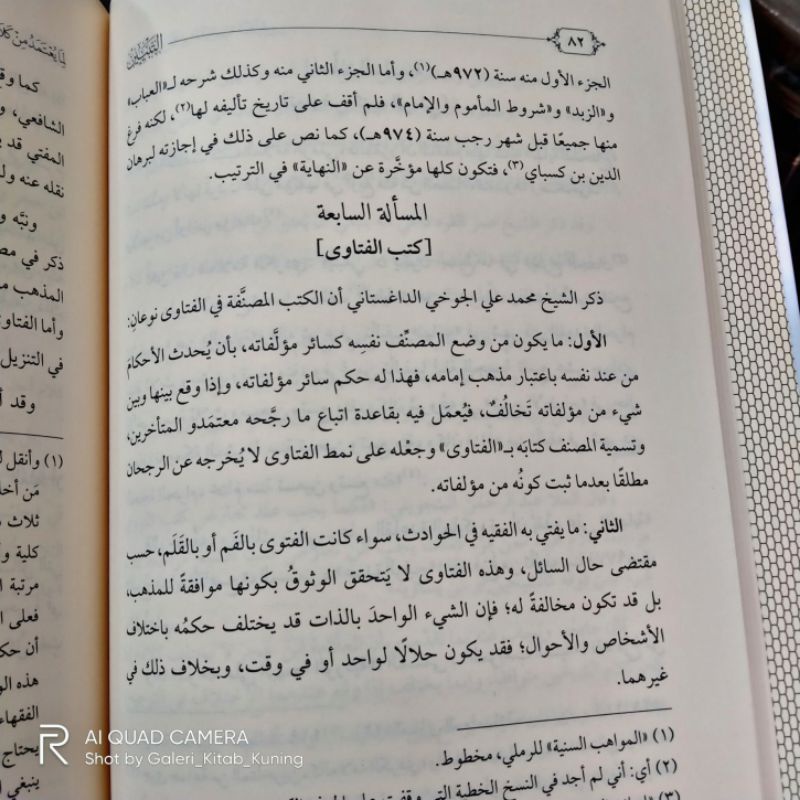 ٨٢
الجزء الأول منه سنة (٩٧٢هـ)(١)، وأما الجزء الثاني منه وكذلك شرحه لـ«العباب»
و«الزبد» و«شروط المأموم والإمام»، فلم أقف على تاريخ تأليفه لها(٢)، لكنه فرغ
منها جميعًا قبل شهر رجب سنة (٩٧٤هـ)، كما نص على ذلك في إجازته لبرهان
الدين بن كسباي(٣)، فتكون كلها مؤخَّرة عن «النهاية» في الترتيب.
المسألة السابعة
[كتب الفتاوى]
ذكر الشيخ محمد علي الجوخي الداغستاني أن الكتب المصنَّفة في الفتاوى نوعان:
الأول: ما يكون من وضع المصنِّف نفسِه كسائر مؤلَّفاته، بأن يُحدث الأحكامَ
من عند نفسه باعتبار مذهب إمامه، فهذا له حكم سائر مؤلفاته، وإذا وقع بينها وبين
شيء من مؤلفاته تَخالُفٌ، فيُعمَل فيه بقاعدة اتباع ما رجَّحه معتمَدو المتأخرين،
وتسمية المصنف كتابَه بـ«الفتاوى» وجعْله على نمط الفتاوى لا يُخرجه عن الرجحان
مطلقًا بعدما ثبت كونُه من مؤلفاته.
الثاني: ما يفتي به الفقيه في الحوادث، سواء كانت الفتوى بالفَم أو بالقَلَم، حسب
مقتضى حال السائل، وهذه الفتاوى لا يَتحقق الوثوقُ بكونها موافقةً للمذهب،
بل قد تكون مخالفةً له؛ فإن الشيء الواحدَ بالذات قد يختلف حكمُه باختلاف
الأشخاص والأحوال؛ فقد يكون حلالًا لواحد أو في وقت، وبخلاف ذلك في
غيرهما.
(١) «المواهب السنية» للرملي، مخطوط.
(٢) أي: أني لم أجد في النسخ الخطية التي وقفت
(٣)
كما
الشافعي،
المفتي قد
نقله عنه
ونبَّه
ذكر في
المذهب
وأما الفتاوى
في التنزيل
وقد
(١) وأنقل
ثلاث
كلية
مرتبة
فعلى
أن
هذه
الفقهاء
يحتاج
ينبغي
AI QUAD CAMERA
Shot by Galeri_Kitab_Kuning